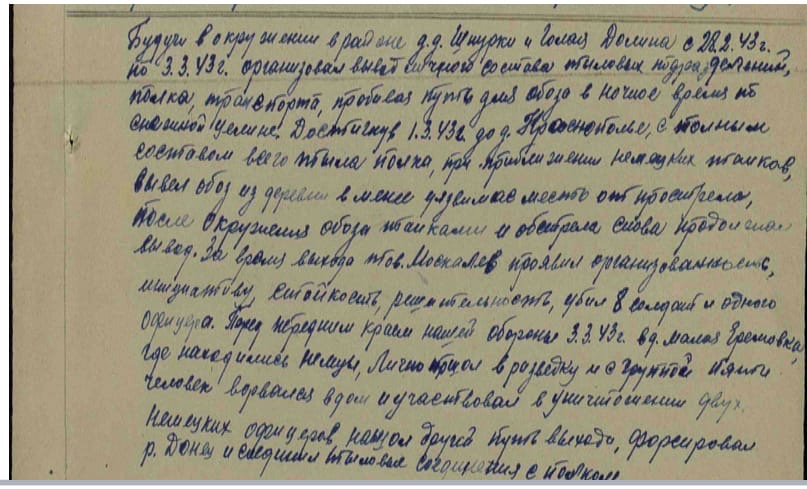 Будучи в окружении в районе д.д. Шнурки и Голая Долина с 28.2.43г.
по 3.3.43г. организовал вывод личного состава тыловых подразделений,
полка, транспорта, пробивая путь для обоза в ночное время по
снежной целине. Достигнув 1.3.43г. до д. Краснополье, с полным
составом всего тыла полка, при приближении немецких танков,
вывел обоз из деревни в менее уязвимае место от прострела,
после окружения обоза танками и обстрела снова продолжал
вывод. За время выхода тов. Москалев проявил организованность,
инициативу, стойкость, решительность, убил 8 солдат и одного
офицера. Перед передним краем нашей обороны 3.3.43г. в д. малая Еремовка,
где находились немцы, Лично пошол в разведку и с группой пяти
человек ворвался в дом и участвовал в уничтожении двух
немецких офицеров, нашол другой путь выхода, форсировал
р. Донец и соединил тыловые соединения с полком